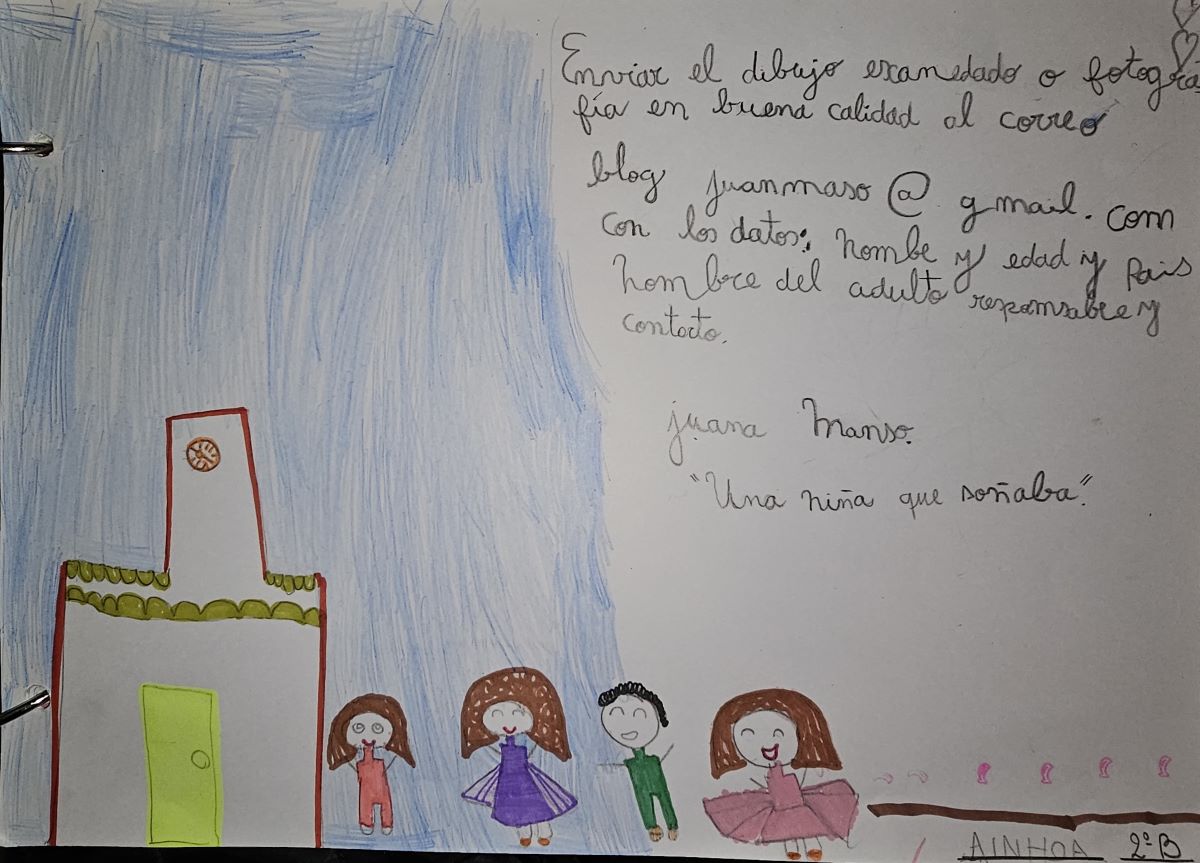 Enviar el dibujo exanedado o fotogra
fía en buena calidad al correo
blog juanmaso@gmail.com
con los datos: nombe y edad y Pais
nombre del adulto responsable y
contacto.
juana Manso.
"Una niña que soñaba".
AINHOA 2ºB